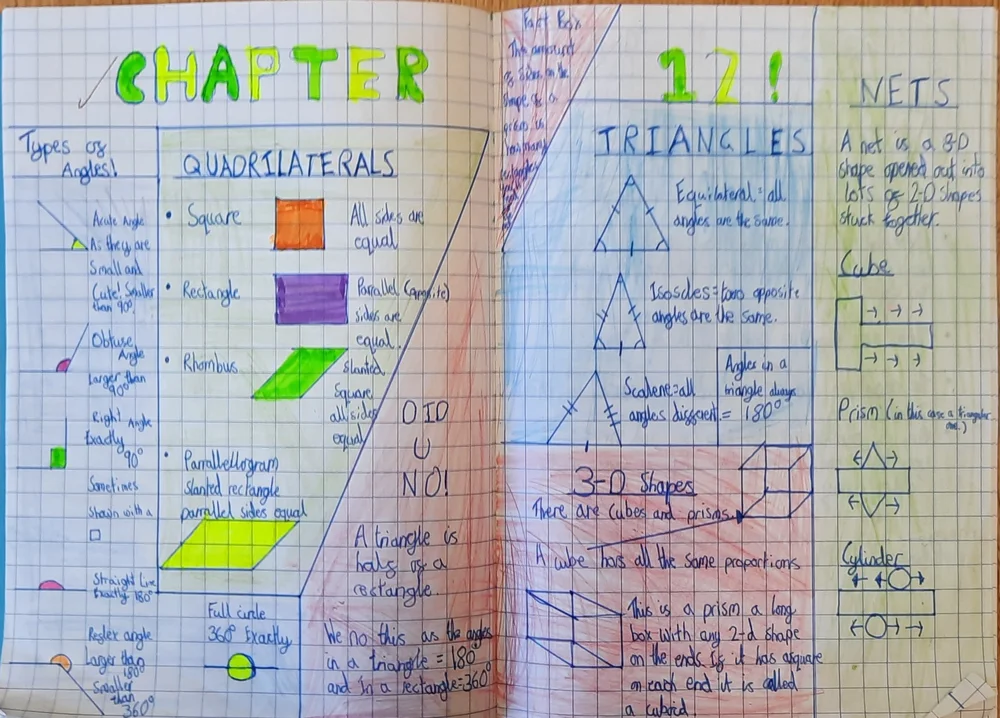 CHAPTER
Types of
Angles!
Acute Angle
As they are
Small and
Cute! Smaller
than 90°.
Obtuse
Angle
Larger than
90°
Right Angle
Exactly
90°
Sometimes
Shown with a
Straight Line
Exactly 180°
Reflex angle
Larger than
180°
Smaller
than
360°
QUADRILATERALS
• Square
All sides are
equal
• Rectangle
Parrallel (opposite)
sides are
equal.
• Rhombus
Slanted
Square
all sides
equal
• Parrallellogram
Slanted rectangle
parrallel sides equal
Full circle
360° Exactly
DID
U
NO!
A triangle is
half of a
rectangle.
We no this as the angles
in a triangle = 180°
and in a rectangle=360°
Fact Box
The amount
of sides on the
shape of a
prism is
how many
12!
TRIANGLES
Equilateral= all
angles are the same.
Isosoles= two opposite
angles are the same.
Scalene=all
angles different.
Angles in a
triangle always
= 180°
3-D Shapes
There are cubes and prisms.
A cube has all the same proportions
This is a prism a long
box with any 2-d shape
on the ends. If it has a square
on each end it is called
a cuboid.
NETS
A net is a 3-D
shape opened out into
lots of 2-D shapes
stuck together.
Cube
Prism (in this case a triangular
one.)
Cylinder